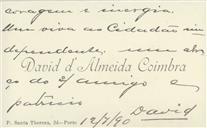 coragem e energia.
Um viva ao Cidadão in-
dependente. um abra
David d'Almeida Coimbra
ço do s/ amigo e
patricio
David
P. Santa Thereza, 26—Porto
12/7/90